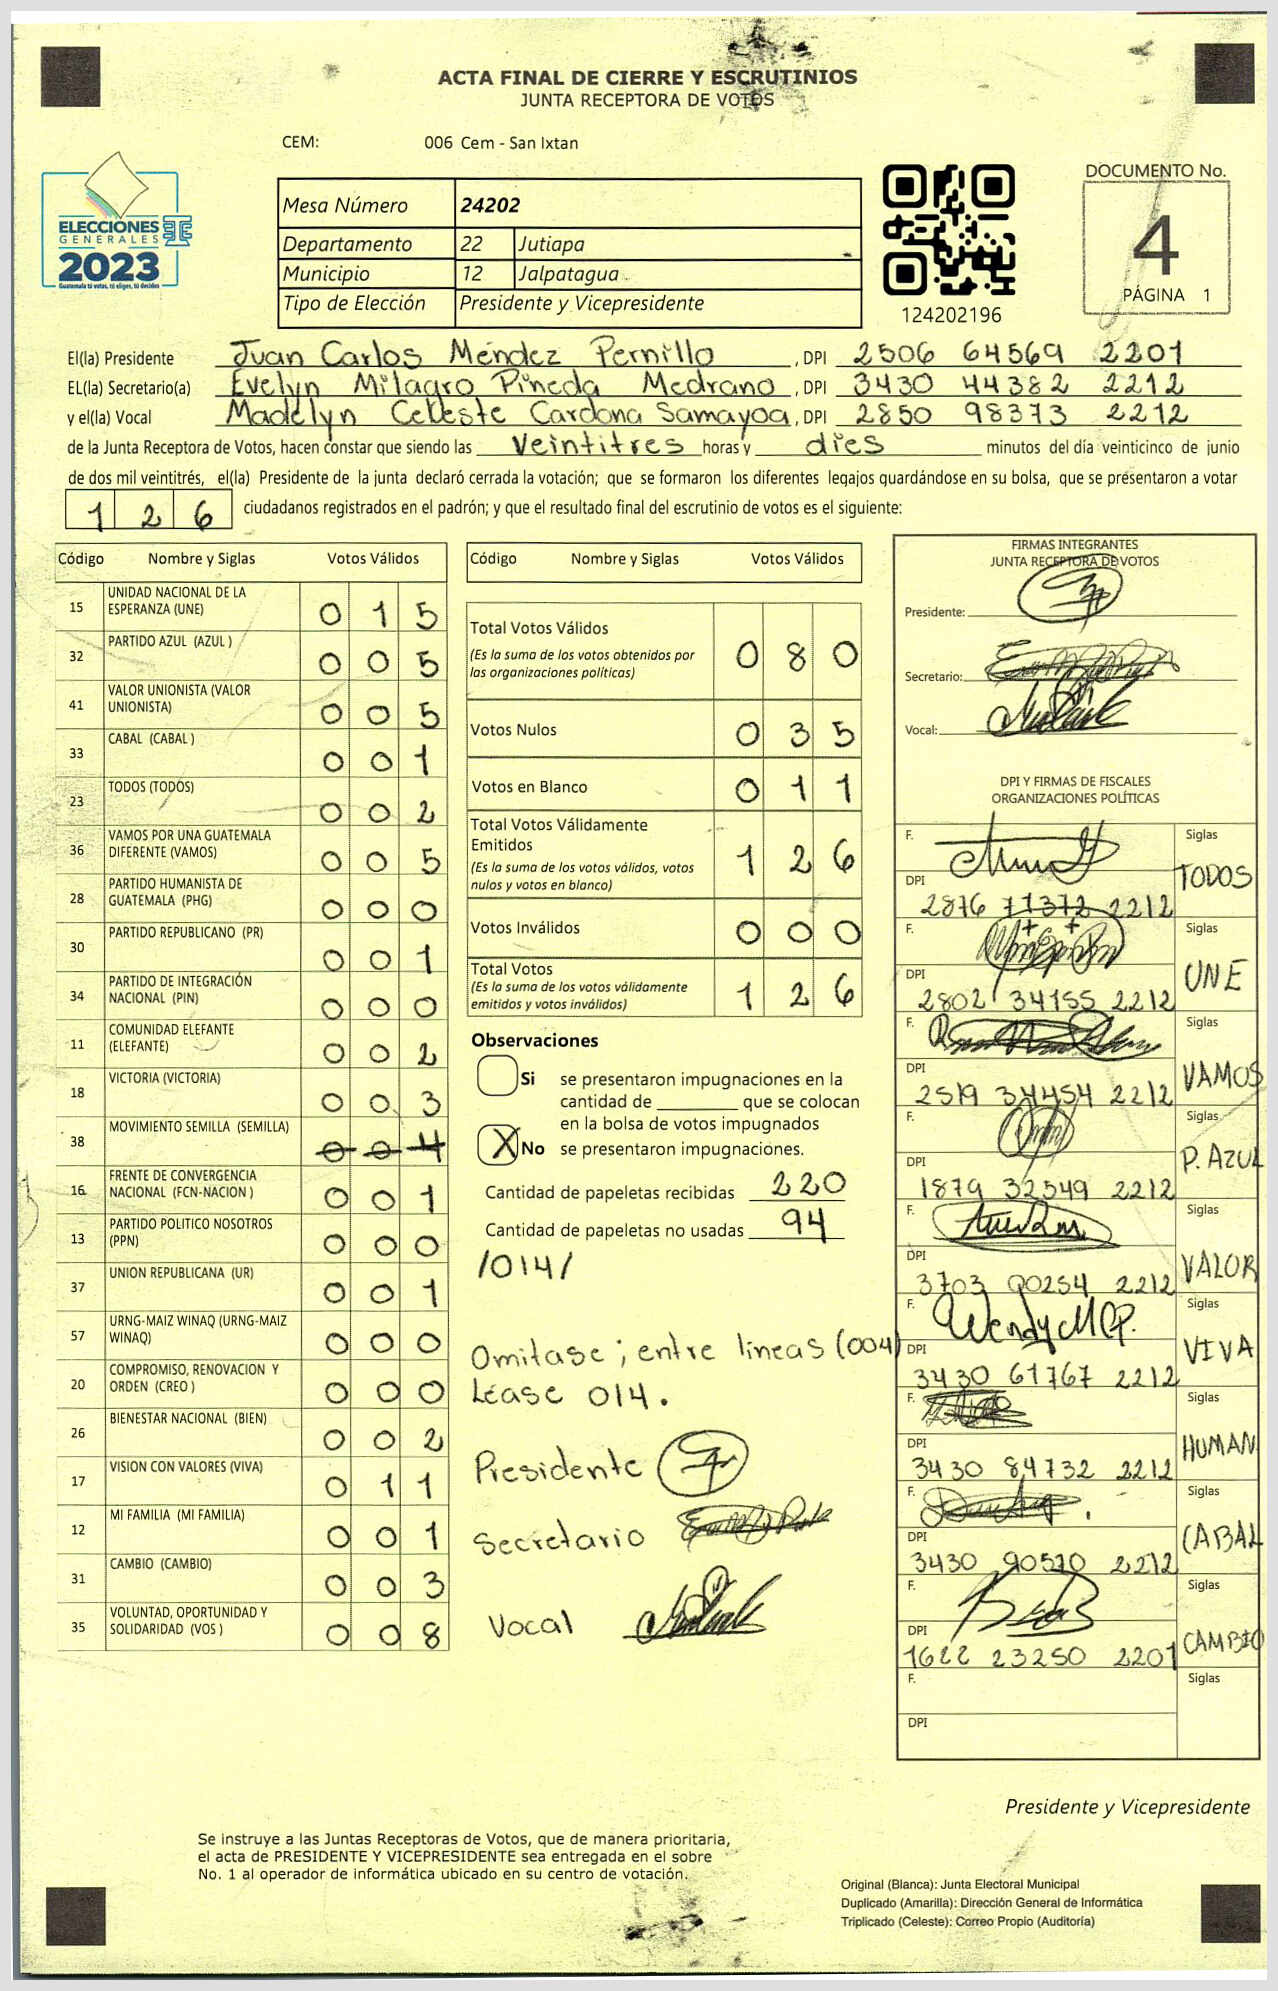 ACTA FINAL DE CIERRE Y ESCRUTINIOS
JUNTA RECEPTORA DE VOTOS
CEM: 006 Cem - San Ixtan
ELECCIONES
GENERALES
2023
Guatemala tú votas, tú eliges, tú decides
Mesa Número 24202
Departamento 22 Jutiapa
Municipio 12 Jalpatagua
Tipo de Elección Presidente y Vicepresidente
124202196
DOCUMENTO No.
4
PÁGINA 1
El(la) Presidente Juan Carlos Méndez Pernillo, DPI 2506 64569 2201
EL(la) Secretario(a) Evelyn Milagro Pineda Medrano, DPI 3430 44382 2212
y el(la) Vocal Madelyn Celeste Cardona Samayoa, DPI 2850 98373 2212
de la Junta Receptora de Votos, hacen constar que siendo las veintitres horas y dies minutos del día veinticinco de junio
de dos mil veintitrés, el(la) Presidente de la junta declaró cerrada la votación; que se formaron los diferentes legajos guardándose en su bolsa, que se présentaron a votar
126 ciudadanos registrados en el padrón; y que el resultado final del escrutinio de votos es el siguiente:
Código Nombre y Siglas Votos Válidos
15 UNIDAD NACIONAL DE LA ESPERANZA (UNE) 0 1 5
32 PARTIDO AZUL (AZUL ) 0 0 5
41 VALOR UNIONISTA (VALOR UNIONISTA) 0 0 5
33 CABAL (CABAL ) 0 0 1
23 TODOS (TODOS) 0 0 2
36 VAMOS POR UNA GUATEMALA DIFERENTE (VAMOS) 0 0 5
28 PARTIDO HUMANISTA DE GUATEMALA (PHG) 0 0 0
30 PARTIDO REPUBLICANO (PR) 0 0 1
34 PARTIDO DE INTEGRACIÓN NACIONAL (PIN) 0 0 0
11 COMUNIDAD ELEFANTE (ELEFANTE) 0 0 2
18 VICTORIA (VICTORIA) 0 0 3
38 MOVIMIENTO SEMILLA (SEMILLA) 0 0 4
16 FRENTE DE CONVERGENCIA NACIONAL (FCN-NACION ) 0 0 1
13 PARTIDO POLITICO NOSOTROS (PPN) 0 0 0
37 UNION REPUBLICANA (UR) 0 0 1
57 URNG-MAIZ WINAQ (URNG-MAIZ WINAQ) 0 0 0
20 COMPROMISO, RENOVACION Y ORDEN (CREO ) 0 0 0
26 BIENESTAR NACIONAL (BIEN) 0 0 2
17 VISION CON VALORES (VIVA) 0 1 1
12 MI FAMILIA (MI FAMILIA) 0 0 1
31 CAMBIO (CAMBIO) 0 0 3
35 VOLUNTAD, OPORTUNIDAD Y SOLIDARIDAD (VOS ) 0 0 8
Código Nombre y Siglas Votos Válidos
Total Votos Válidos 0 8 0
(Es la suma de los votos obtenidos por
las organizaciones políticas)
Votos Nulos 0 3 5
Votos en Blanco 0 1 1
Total Votos Válidamente
Emitidos 1 2 6
(Es la suma de los votos válidos, votos
nulos y votos en blanco)
Votos Inválidos 0 0 0
Total Votos 1 2 6
(Es la suma de los votos válidamente
emitidos y votos inválidos)
Observaciones
Si se presentaron impugnaciones en la
cantidad de ________ que se colocan
en la bolsa de votos impugnados
X No se presentaron impugnaciones.
Cantidad de papeletas recibidas 220
Cantidad de papeletas no usadas 94
/014/
Omitase; entre lineas (004)
Léase 014.
Presidente
Secretario
Vocal
FIRMAS INTEGRANTES
JUNTA RECEPTORA DE VOTOS
Presidente:
Secretario:
Vocal:
DPI Y FIRMAS DE FISCALES
ORGANIZACIONES POLÍTICAS
F. Siglas
TODOS
DPI
2876 77372 2212
F. Siglas
UNE
DPI
2802 34155 2212
F. Siglas
VAMOS
DPI
2519 34454 2212
F. Siglas
P. AZUL
DPI
1879 32549 2212
F. Siglas
VALOR
DPI
3703 00254 2212
F. Wendy MGP. Siglas
VIVA
DPI
3430 61767 2212
F. Siglas
HUMAN
DPI
3430 84732 2212
F. Siglas
CABAL
DPI
3430 90570 2212
F. Siglas
CAMBIO
DPI
1622 23250 2201
F. Siglas
DPI
Presidente y Vicepresidente
Se instruye a las Juntas Receptoras de Votos, que de manera prioritaria,
el acta de PRESIDENTE Y VICEPRESIDENTE sea entregada en el sobre
No. 1 al operador de informática ubicado en su centro de votación.
Original (Blanca): Junta Electoral Municipal
Duplicado (Amarilla): Dirección General de Informática
Triplicado (Celeste): Correo Propio (Auditoría)